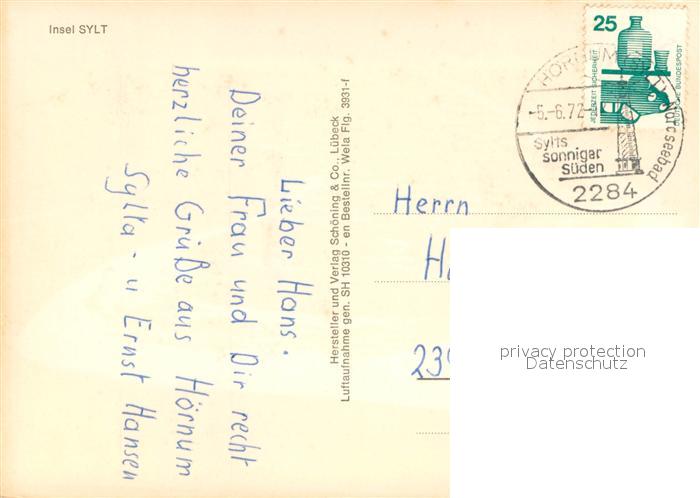 Insel SYLT
Lieber Hans.
Deiner Frau und Dir recht
herzliche Grüße aus Hörnum
Sylta - u Ernst Hansen
Hersteller und Verlag Schöning & Co., Lübeck
Luftaufnahme gen. SH 10310 - en Bestellnr. Wela Flg. 3931-f
25
JEDERZEIT SICHERHEIT
DEUTSCHE BUNDESPOST
-5.-6.72
Sylts
sonniger
Süden
2284
Herrn
privacy protection
Datenschutz